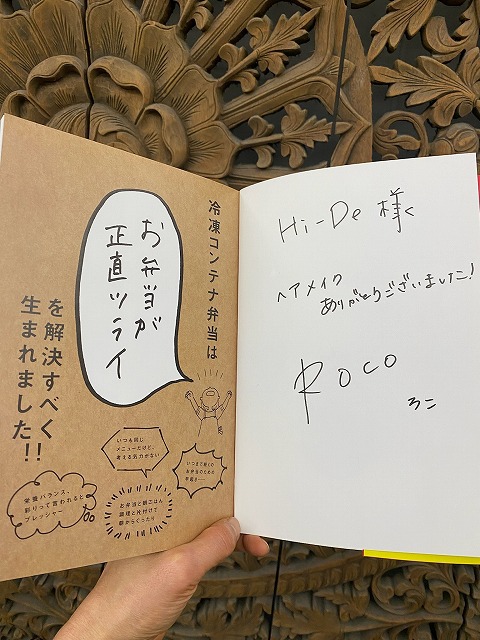 冷凍コンテナ弁当は
お弁当が
正直ツライ
を解決すべく
生まれました!!
いつも同じ
メニューだけど、
考える気力がない
いつまで続くの
お弁当のための
早起き……
栄養バランス、
彩りって言われると
プレッシャー
お弁当と朝ごはん
調理と片付けで
朝からぐったり
Hi-De 様
ヘアメイク
ありがとうございました!
ROCO
ろこ